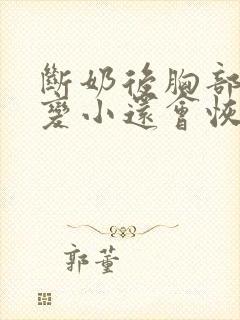 斷奶後胸部
變小還會恢
郭董